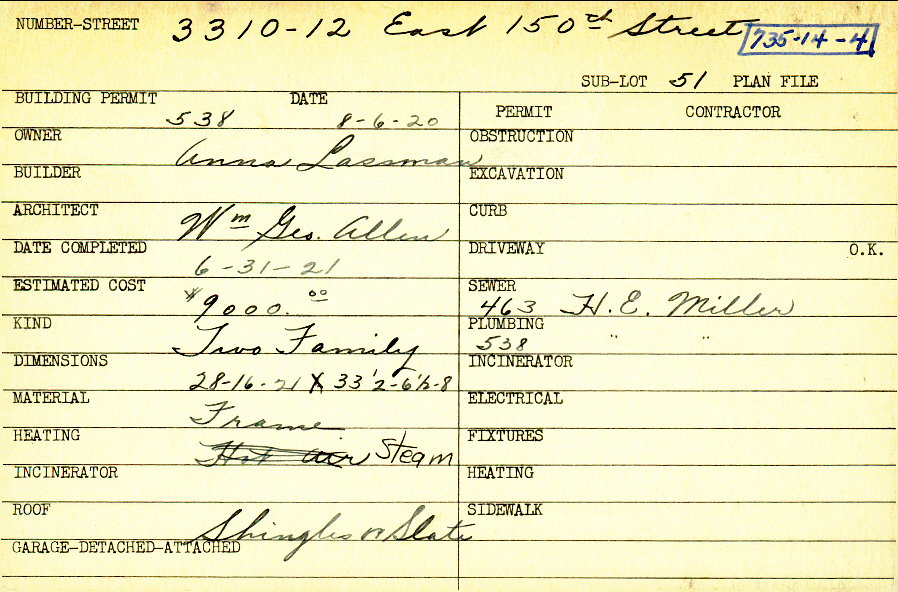 NUMBER-STREET 3310-12 East 150th Street 735-14-4
SUB-LOT 51 PLAN FILE
BUILDING PERMIT 538 DATE 8-6-20
OWNER Anna Lassman
BUILDER
ARCHITECT Wm Geo. Allen
DATE COMPLETED 6-31-21
ESTIMATED COST $9000.00
KIND Two Family
DIMENSIONS 28-16-21 X 33 1/2-6 1/2-8
MATERIAL Frame
HEATING Hot air Steam
INCINERATOR
ROOF Shingles or Slate
GARAGE-DETACHED-ATTACHED
PERMIT CONTRACTOR
OBSTRUCTION
EXCAVATION
CURB
DRIVEWAY O.K.
SEWER 463 H.E. Miller
PLUMBING 538 " "
INCINERATOR
ELECTRICAL
FIXTURES
HEATING
SIDEWALK